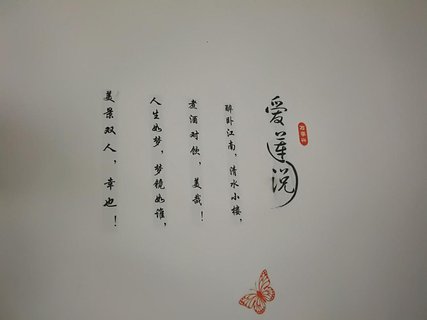 爱莲说
醉卧江南，清水小楼，
煮酒对饮，美哉！
人生如梦，梦镜如谁，
美景双人，幸也！